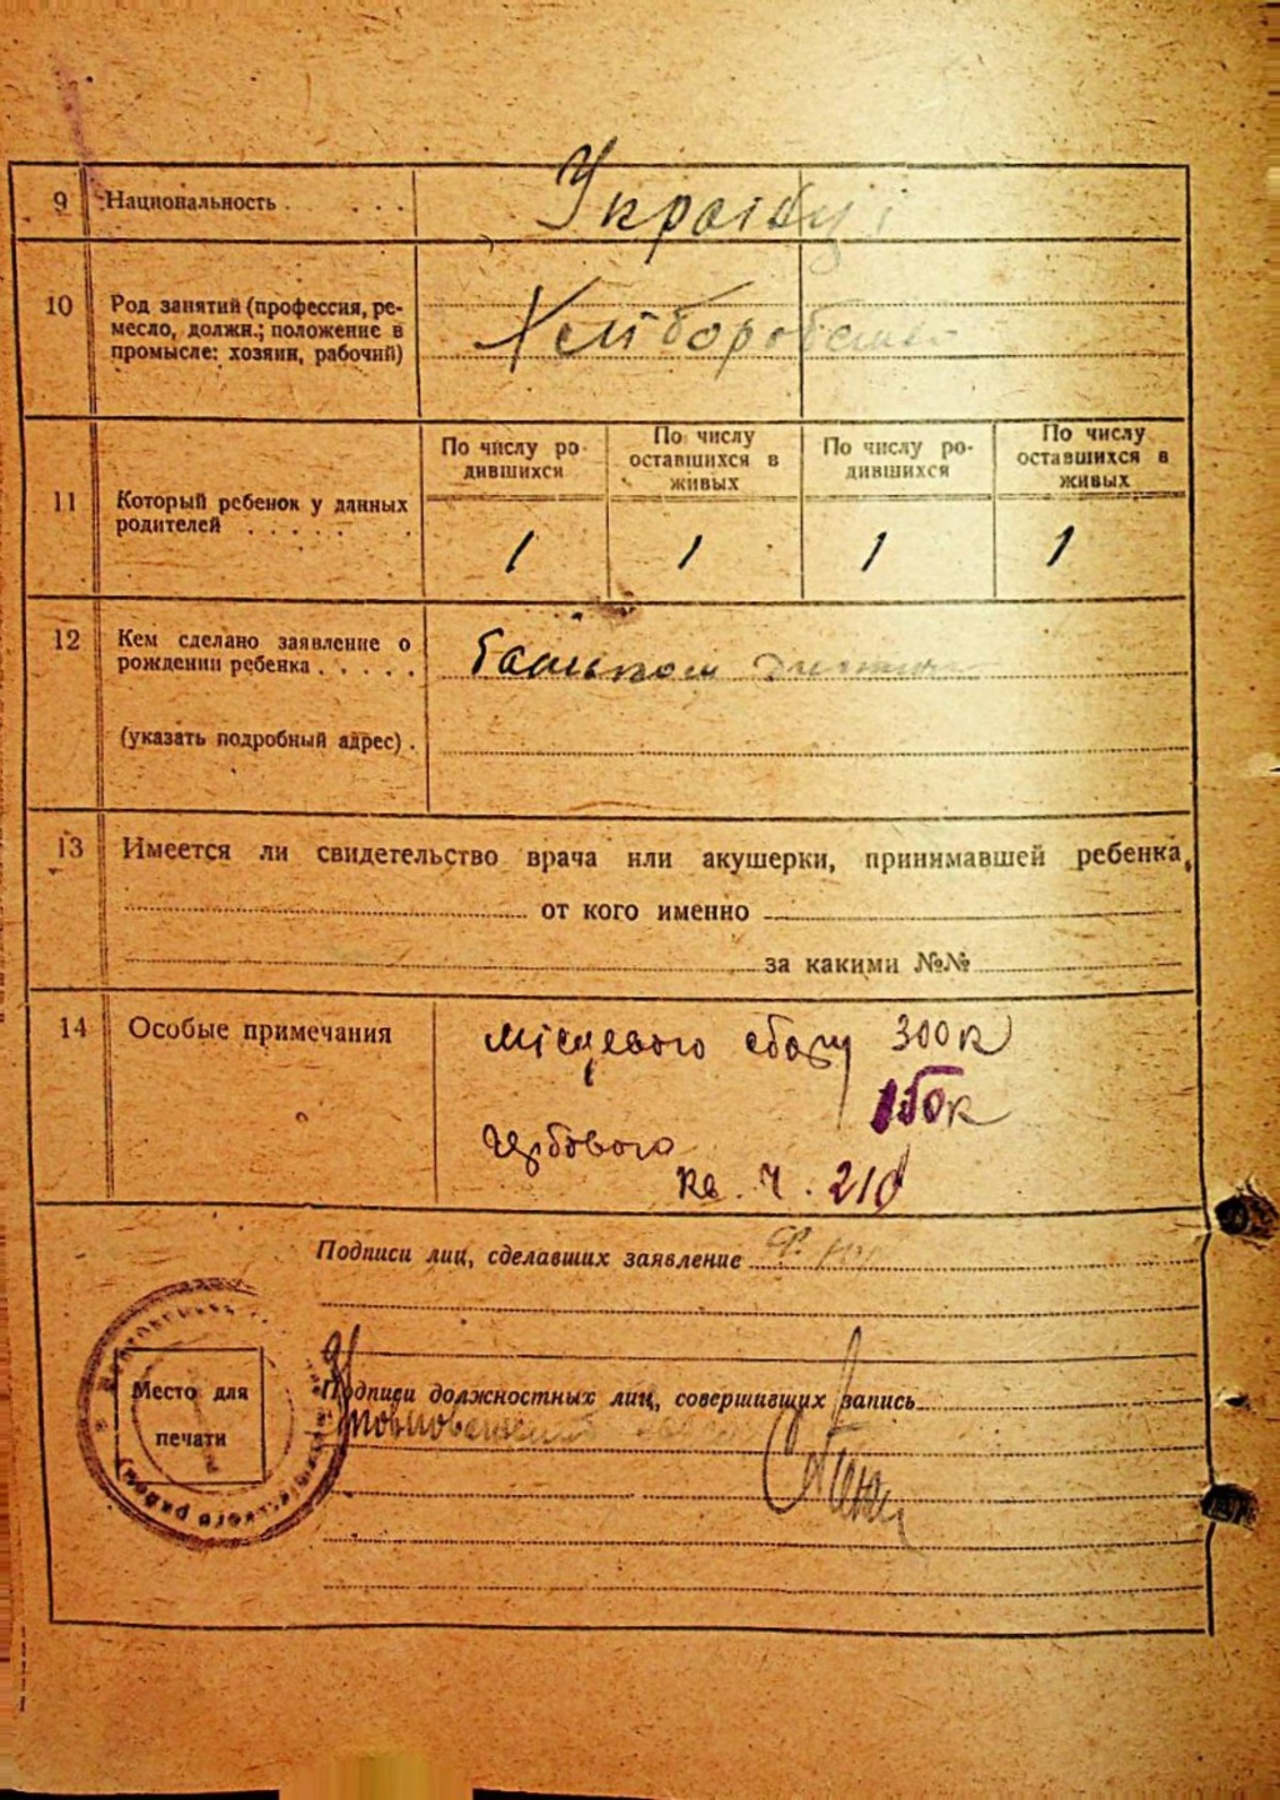 9 Национальность . . . .
Українці
10 Род занятий (профессия, ре-
месло, должн.; положение в
промысле: хозяин, рабочий)
Хліборобство
По числу ро-
дившихся
По числу
оставшихся в
живых
По числу ро-
дившихся
По числу
оставшихся в
живых
11 Который ребенок у данных
родителей . . . . . .
1 1 1 1
12 Кем сделано заявление о
рождении ребенка . . . . .
батьком дитини
(указать подробный адрес) .
13 Имеется ли свидетельство врача или акушерки, принимавшей ребенка,
от кого именно
за какими №№
14 Особые примечания
місцевого сбору 300к
150к
гербового
кв. ч. 210
Подписи лиц, сделавших заявление
Место для
печати
Подписи должностных лиц, совершивших запись
ского району